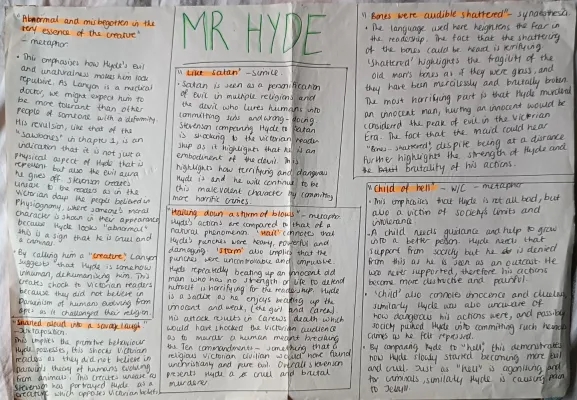 "Abnormal and misbegotten in the
very essence of the creature"
- metaphor
• This emphasises how Hyde's evil
and unnaturalness makes him look
repulsive. As Lanyon is a medical
doctor, we might expect him to
be more tolerant than other
people of someone with a deformity.
His revulsion, like that of the
"sawbones" in chapter 1, is an
indication that it is not just a
physical aspect of Hyde that is
repulsion but also the evil aura
he gives off. Stevenson creates
unease to the readers as in the
Victorian days the people believed in
Physiognomy, where someone's moral
character is shown in their appearance
because Hyde looks "abnormal"
this is a sign that he is cruel and
a criminal
• By calling him a "creature", Lanyon
suggests that Hyde is somehow
inhuman, dehumanising him. This
creates shock to Victorian readers
because they did not believe in
Darwinism of humans evolving from
apes as it challenged their religion.
"Snarled aloud into a savage laugh"
This implies the primitive behaviour
Hyde possesses, this shocks Victorian
readers as they did not believed in
Darwin's theory of humans evolving
from animals. This creates unease as
Stevenson has portrayed Hyde as a
creature which opposes Victorian beliefs
MR HYDE
"Like Satan" - simile
Satan is seen as a personification
of evil in multiple religions and
the devil who lures humans into
committing sins and wrong-doing
Stevenson comparing Hyde to Satan
is shocking to the victorian reader
ship as it highlights that he is an
embodiment of the devil. This
highlights how terrifying and dangerous
Hyde is and he will continue to be
this malevolent character by committing
more horrific crimes
"Hailing down a storm of blows" - metaphor
Hyde's actions are compared to that of a
natural phenomenon "hail" connotes that
Hyde's punches were heavy, powerful and
damaging. "Storm" also implies that the
punches were uncontrollable and impulsive
Hyde repeatedly beating up an innocent old
man who has no strength or life to defend
himself is horrifying for the readership. Hyde
is a sadist as he enjoys beating up the
innocent and weak (the girl and Carew)
His attack results in Carew's death which
would have shocked the victorian audience
as to murder a human meant breaking
the Ten Commandments - something that a
religious victorian civilian would have found
unchristianly and pure evil. Overall stevenson
presents Hyde a cruel and brutal
murderer
"Bones were audible shattered" -
• The language used here heightens the fear in
the readership. The fact that the shattering
of the bones could be heard is terrifying.
'Shattered' highlights the fragility of the
old man's bones as if they were glass, and
they have been mercilessly and brutally broken
The most horrifying part is that Hyde murdered
an innocent man, hurting an innocent would be
considered the peak of evil in the Victorian
Era. The fact that the maid could hear
"Bones - shattered", despite being at a distance
further highlights the strength of Hyde and
the brutality of his actions.
"Child of hell" - W/C - metaphor
• This emphasises that Hyde is not all bad, but
also a victim of society's limits and
• A child needs guidance and help to grow
into a better person. Hyde needs that
support from society but he is denied
from this as he is seen as an outcast. He
was never supported, therefore his actions
became more destructive and painful.
• 'Child' also connotes innocence and clueless,
similarly Hyde was also unaware of
how dangerous his actions were, and possibly
society pushed Hyde into committing such heinous
crimes as he felt repressed.
By comparing Hyde to "hell", this demonstrates
how Hyde slowly started becoming more evil
and cruel. Just as "hell" is agonising and
for criminals similarly Hyde is causing pain
to Jekyll.